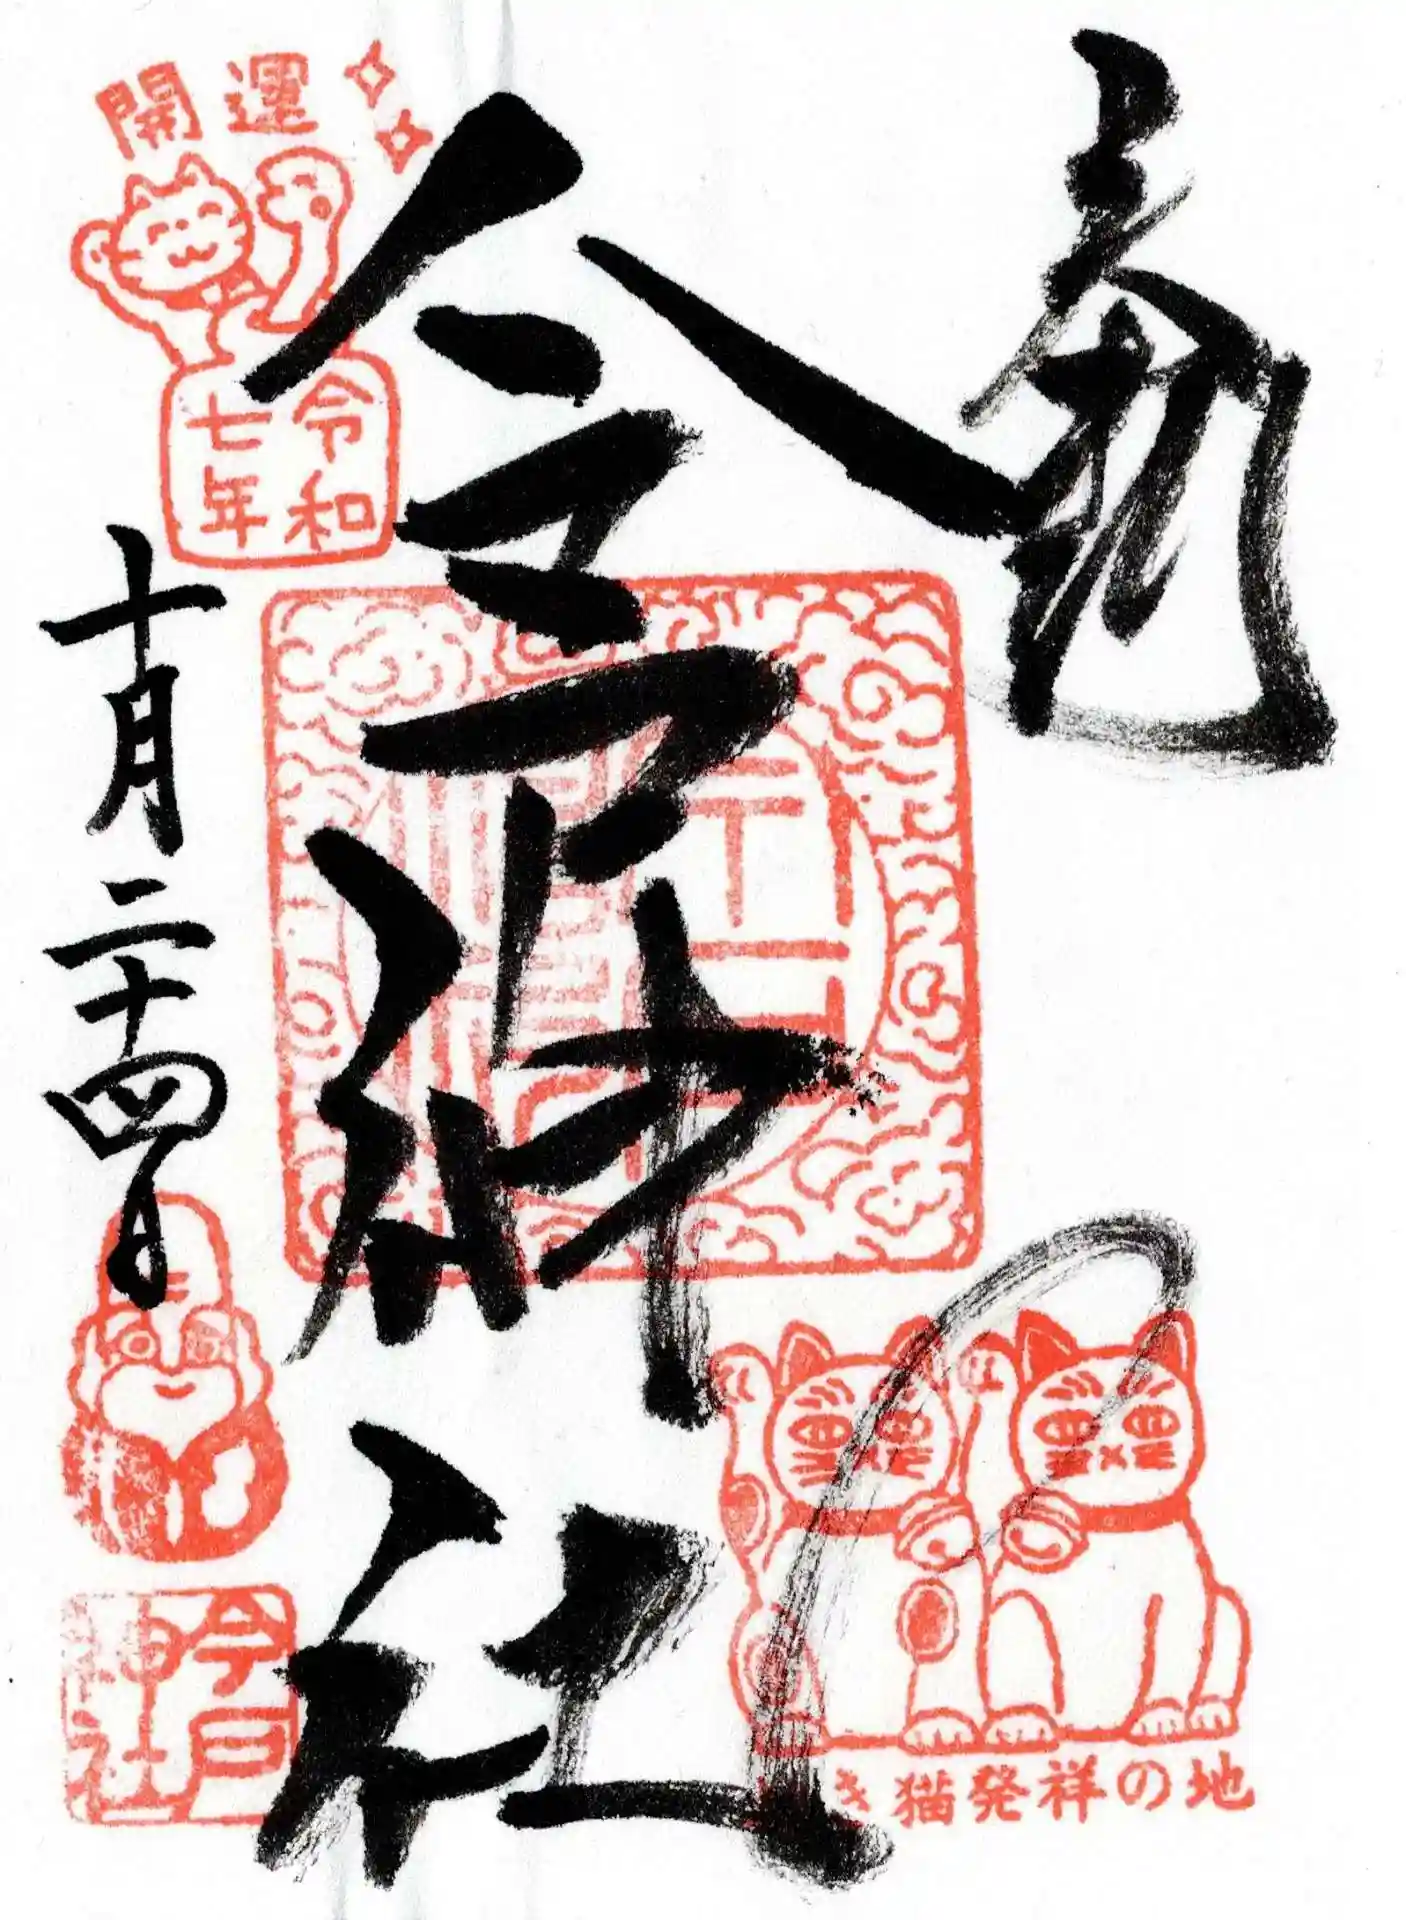 奉拝
今戸神社
開運
令和
七年
十月二十四日
今戸
神社
招き猫発祥の地